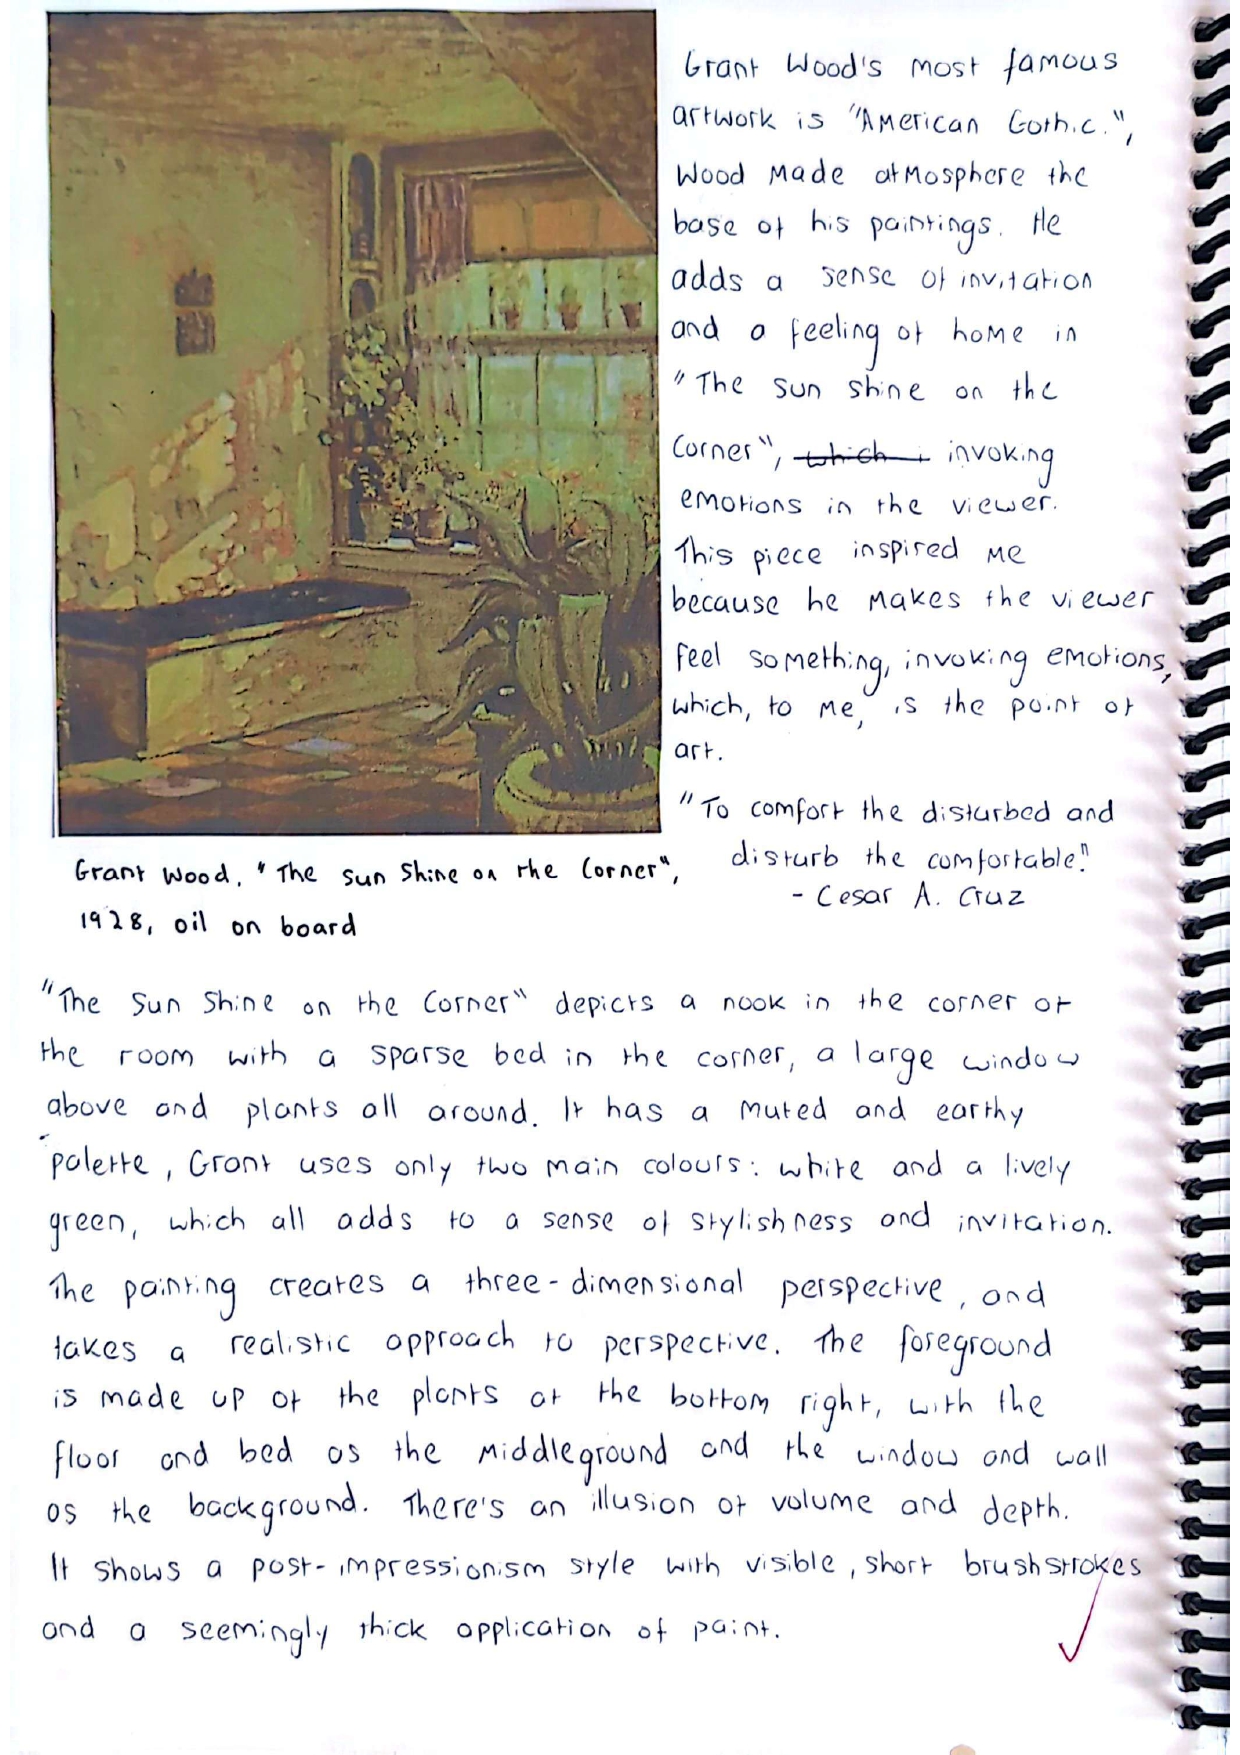 Grant Wood's most famous
artwork is "American Gothic.",
Wood made atmosphere the
base of his paintings. He
adds a sense of invitation
and a feeling of home in
"The sun shine on the
Corner", which i invoking
emotions in the viewer.
This piece inspired me
because he makes the viewer
feel something, invoking emotions,
which, to me, is the point of
art.
"To comfort the disturbed and
disturb the comfortable."
- Cesar A. Cruz
Grant Wood, "The Sun Shine on the Corner",
1928, oil on board
"The Sun Shine on the Corner" depicts a nook in the corner of
the room with a sparse bed in the corner, a large window
above and plants all around. It has a muted and earthy
palette, Grant uses only two main colours: white and a lively
green, which all adds to a sense of stylishness and invitation.
The painting creates a three-dimensional perspective, and
takes a realistic approach to perspective. The foreground
is made up of the plants at the bottom right, with the
floor and bed as the middleground and the window and wall
as the background. There's an illusion of volume and depth.
It shows a post-impressionism style with visible, short brushstrokes
and a seemingly thick application of paint.